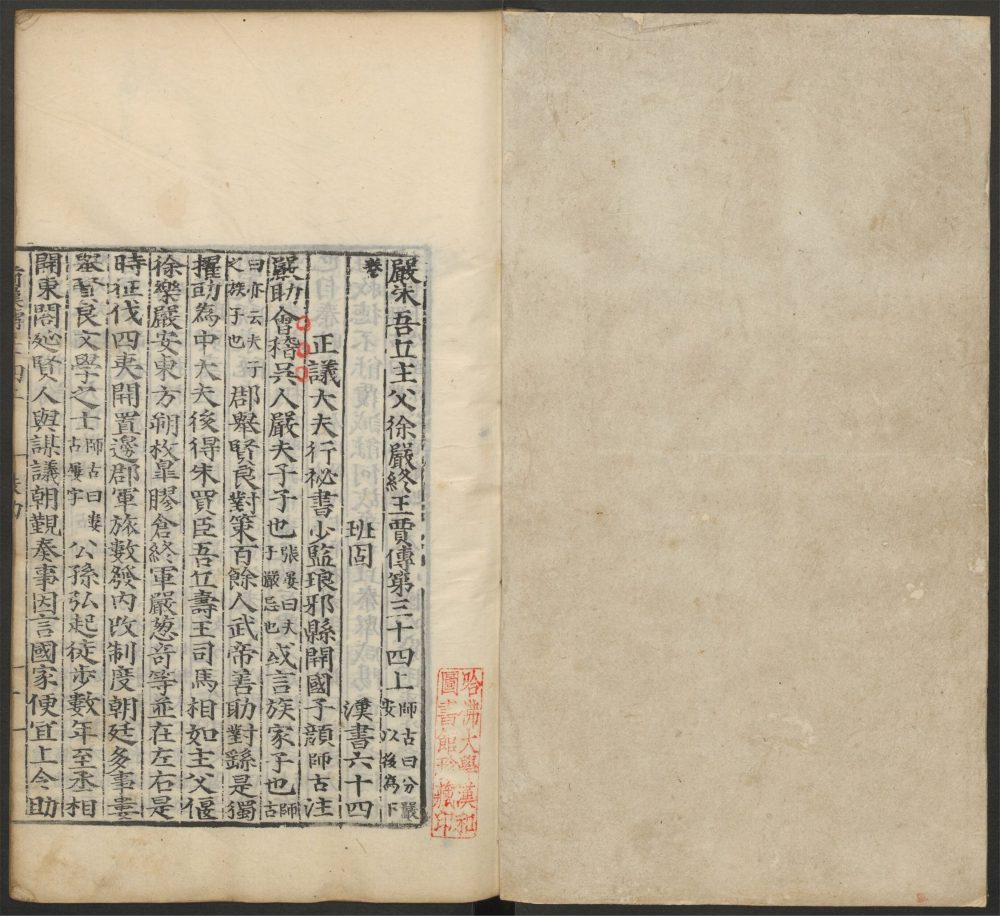 嚴朱吾丘主父徐嚴終王賈傳第三十四上師古曰分嚴安以後為下卷
班固 漢書六十四
正議大夫行祕書少監琅邪縣開國子顏師古注
嚴助會稽吳人嚴夫子子也張晏曰夫子嚴忌也或言族家子也師古
曰亦云夫行之族子也郡舉賢良對策百餘人武帝善助對繇是獨
擢助為中大夫後得朱買臣吾丘壽王司馬相如主父偃
徐樂嚴安東方朔枚臯膠倉終軍嚴葱奇等並在左右是
時征伐四夷開置邊郡軍旅數發內改制度朝廷多事婁
舉賢良文學之士師古曰婁古屢字公孫弘起徒步數年至丞相
開東閤延賢人與謀議朝覲奏事因言國家便宜上令助
哈佛大學漢和
圖書館珍藏印